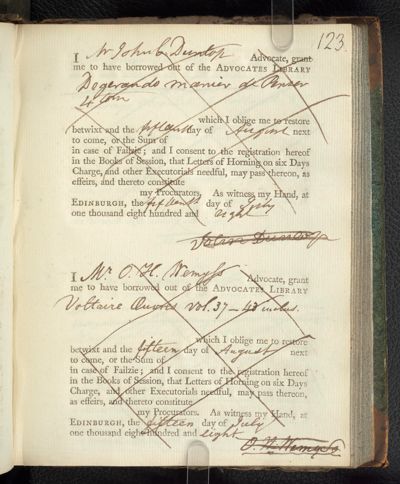 123.
I Mr John C Dunlop Advocate, grant
me to have borrowed out of the ADVOCATES LIBRARY
Degerando maniere de Penser
4 tom
which I oblige me to restore
betwixt and the fifteen day of August next
to come, or the Sum of
in case of Failzie; and I consent to the registration hereof
in the Books of Session, that Letters of Horning on six Days
Charge, and other Executorials needful, may pass thereon, as
effeirs, and thereto constitute
my Procurators. As witness my Hand, at
EDINBURGH, the fifteenth day of July
one thousand eight hundred and eight
John Dunlop
I Mr. O. H. Wemyss Advocate, grant
me to have borrowed out of the ADVOCATES LIBRARY
Voltaire Œuvres vol. 37 – 43 inclus.
which I oblige me to restore
betwixt and the fifteen day of August next
to come, or the Sum of
in case of Failzie; and I consent to the registration hereof
in the Books of Session, that Letters of Horning on six Days
Charge, and other Executorials needful, may pass thereon,
as effeirs, and thereto constitute
my Procurators. As witness my Hand, at
EDINBURGH, the fifteen day of July
one thousand eight hundred and eight
O. H. Wemyss